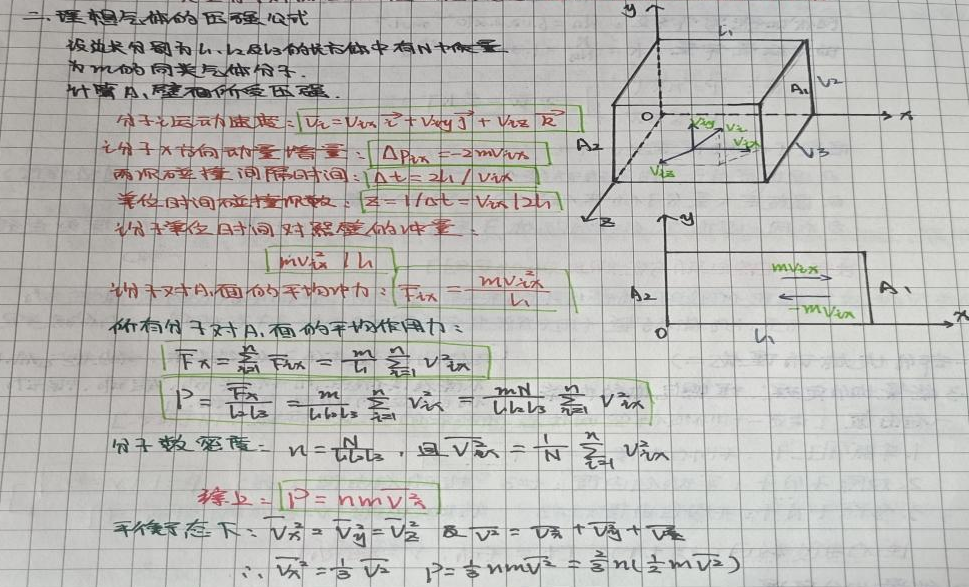 二.理想气体的压强公式
设边长分别为 l₁、l₂及l₃的长方体中有N个质量
为m的同类气体分子.
计算A₁壁面所受压强.
分子i运动速度: v⃗ᵢ = vᵢₓ i⃗ + vᵢy j⃗ + vᵢz k⃗
i分子x方向动量增量: Δpᵢₓ = -2mvᵢₓ
两次碰撞间隔时间: Δt = 2l₁ / vᵢₓ
单位时间碰撞次数: Z = 1/Δt = vᵢₓ / 2l₁
i分子单位时间对器壁的冲量:
mvᵢₓ² / l₁
i分子对A₁面的平均冲力: F̄ᵢₓ = mvᵢₓ² / l₁
所有分子对A₁面的平均作用力:
F̄ₓ = Σᵢ₌₁ⁿ F̄ᵢₓ = m/l₁ Σᵢ₌₁ⁿ vᵢₓ²
P = F̄ₓ/l₂l₃ = m/l₁l₂l₃ Σᵢ₌₁ⁿ vᵢₓ² = mN/l₁l₂l₃ Σᵢ₌₁ⁿ vᵢₓ²
分子数密度: n = N/l₁l₂l₃ , 且 v̄ᵢₓ² = 1/N Σᵢ₌₁ⁿ vᵢₓ²
综上: P = nmv̄ₓ²
平衡态下: v̄ₓ² = v̄y² = v̄z² 及 v̄² = v̄ₓ² + v̄y² + v̄z²
∴ v̄ₓ² = 1/3 v̄² P = 1/3 nmv̄² = 2/3 n(1/2 mv̄²)
y
l₁
A₁
l₂
O
x
A₂
vᵢy
vᵢ
vᵢₓ
vᵢz
l₃
z
y
mvᵢₓ
A₂
A₁
-mvᵢₓ
O
l₁
x